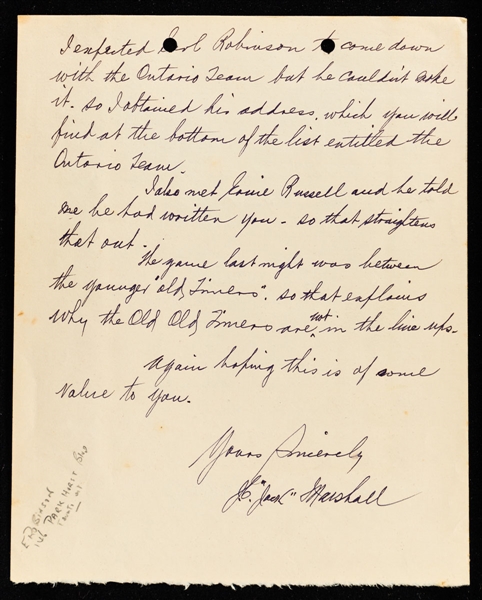 I expected Earl Robinson to come down
with the Ontario Team but he couldn't make
it. so I obtained his address, which you will
find at the bottom of the list entitled the
Ontario Team.
I also met Ernie Russell and he told
me he had written you - so that straightens
that out -
The game last night was between
the younger "old Timers". so that explains
why the Old Old Timers are not in the line ups.
Again hoping this is of some
value to you.
Yours Sincerely
J.C. "Jack" Marshall
E ROBINSON
PARKHURST Blvd